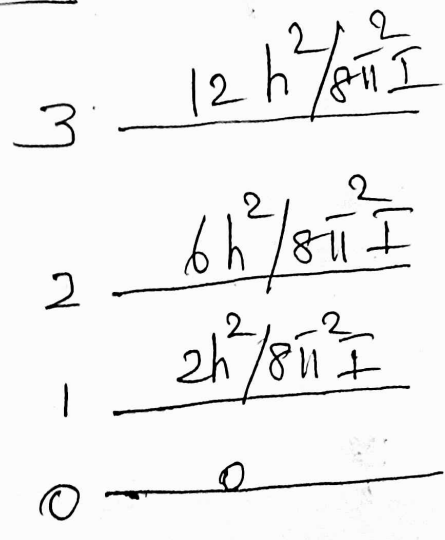 3 12 h²/8π²I
2 6h²/8π²I
1 2h²/8π²I
0 0